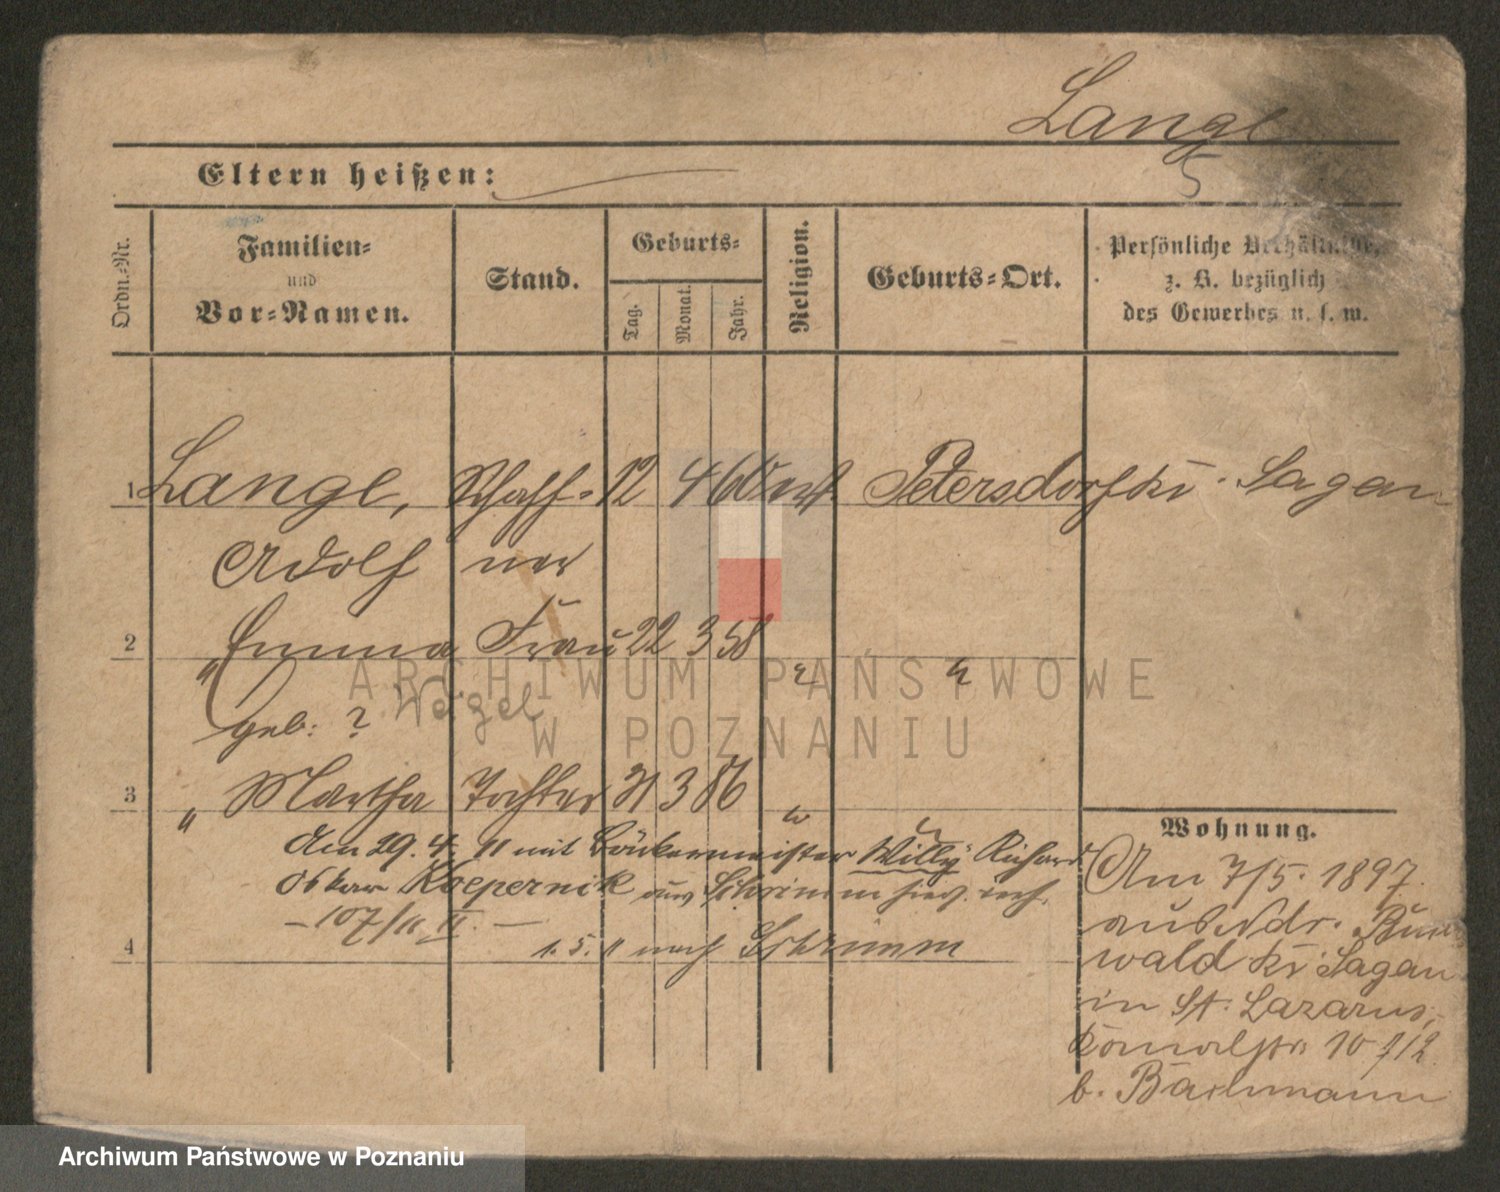 Lange
5
Eltern heißen:
Ordn.-Nr.
Familien-
und
Vor-Namen.
Stand.
Geburts-
Tag.
Monat.
Jahr.
Religion.
Geburts-Ort.
Persönliche Verhältnisse,
z. B. bezüglich
des Gewerbes u. s. w.
1 Lange, Schaff- 12 4 60 Petersdorf Kr. Sagan
Adolf ner
2 " Emma Frau 22 3 58 " "
geb: ? Wetzel
3 " Martha Tochter 21 3 86 "
Am 29. 4. 11 mit Bäckermeister Willy Richard
Oskar Koepernik aus Schrimm
- 107/11 II. -
4 1. 5. 11 nach Schrimm
Wohnung.
Am 7/5. 1897.
aus Ndr. Buch
wald Kr. Sagan
in St. Lazarus,
10
b. Bachmann
ARCHIWUM PAŃSTWOWE
W POZNANIU
Archiwum Państwowe w Poznaniu